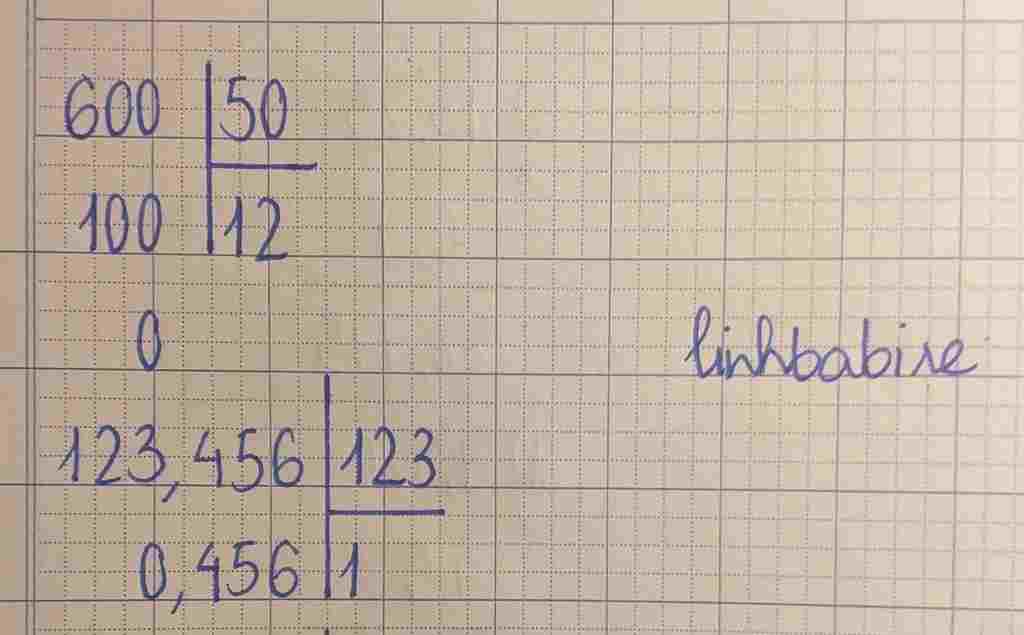 600 50
100 12
0
linhbabire
123,456 123
0,456 1